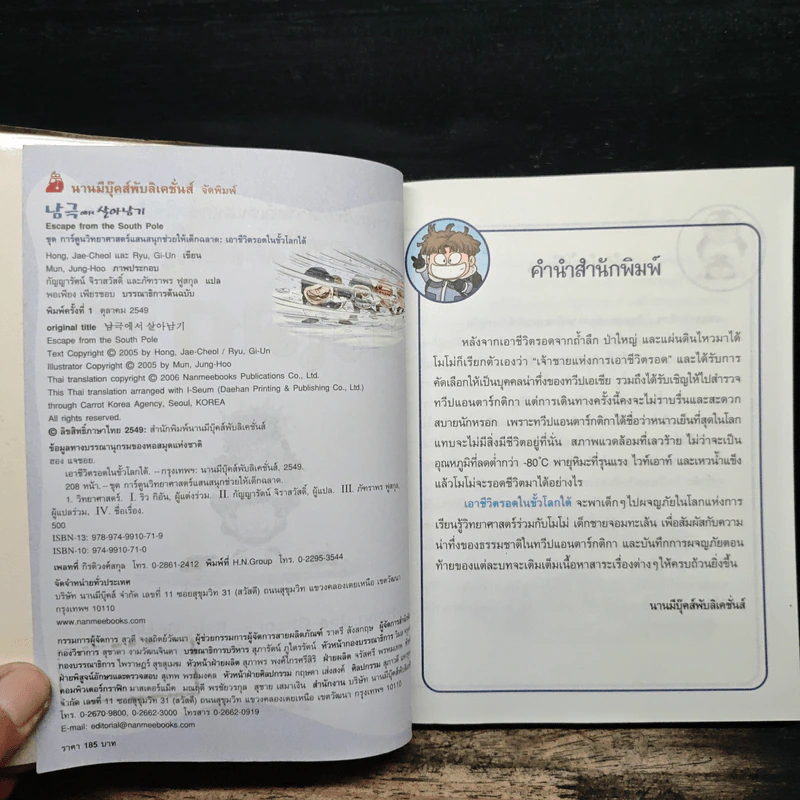 นานมีบุ๊คส์พับลิเคชั่นส์ จัดพิมพ์
남극에서 살아남기
Escape from the South Pole
ชุด การ์ตูนวิทยาศาสตร์แสนสนุกช่วยให้เด็กฉลาด: เอาชีวิตรอดในขั้วโลกใต้
Hong, Jae-Cheol และ Ryu, Gi-Un เขียน
Mun, Jung-Hoo ภาพประกอบ
กัญญารัตน์ จิราสวัสดิ์ และภัทราพร ฟูสกุล แปล
พอเพียง เพียรชอบ บรรณาธิการต้นฉบับ
พิมพ์ครั้งที่ 1 ตุลาคม 2549
original title 남극에서 살아남기
Escape from the South Pole
Text Copyright © 2005 by Hong, Jae-Cheol / Ryu, Gi-Un
Illustrator Copyright © 2005 by Mun, Jung-Hoo
Thai translation copyright © 2006 Nanmeebooks Publications Co., Ltd.
This Thai translation arranged with I-Seum (Daehan Printing & Publishing Co., Ltd.)
through Carrot Korea Agency, Seoul, KOREA
All rights reserved.
© ลิขสิทธิ์ภาษาไทย 2549: สำนักพิมพ์นานมีบุ๊คส์พับลิเคชั่นส์
ข้อมูลทางบรรณานุกรมของหอสมุดแห่งชาติ
ฮอง แจชอย.
เอาชีวิตรอดในขั้วโลกใต้. -กรุงเทพฯ: นานมีบุ๊คส์พับลิเคชั่นส์, 2549.
208 หน้า.-ชุด การ์ตูนวิทยาศาสตร์แสนสนุกช่วยให้เด็กฉลาด.
1. วิทยาศาสตร์. I. ริว กิอัน, ผู้แต่งร่วม. II. กัญญารัตน์ จิราสวัสดิ์, ผู้แปล. III. ภัทราพร ฟูสกุล,
ผู้แปลร่วม. IV. ชื่อเรื่อง.
500
ISBN-13: 978-974-9910-71-9
ISBN-10: 974-9910-71-0
เพลทที่ กิรติวงค์สกุล โทร. 0-2861-2412 พิมพ์ที่ H.N.Group โทร. 0-2295-3544
จัดจำหน่ายทั่วประเทศ
บริษัท นานมีบุ๊คส์ จำกัด เลขที่ 11 ซอยสุขุมวิท 31 (สวัสดี) ถนนสุขุมวิท แขวงคลองเตยเหนือ เขตวัฒนา
กรุงเทพฯ 10110
www.nanmeebooks.com
กรรมการผู้จัดการ สุวดี จงสถิตย์วัฒนา ผู้ช่วยกรรมการผู้จัดการสายผลิตภัณฑ์ ราตรี สังสกฤษ ผู้จัดการสำนักพิมพ์
กองวิชาการ สุชาดา งามวัฒนจินดา บรรณาธิการบริหาร สุภารัตน์ ภูไตรรัตน์ หัวหน้ากองบรรณาธิการ
กองบรรณาธิการ ไพราษฎร์ สุขสุเมฆ หัวหน้าฝ่ายผลิต สุภาพร พงศ์ไกรศรีสิริ ฝ่ายผลิต จรัสศรี
ฝ่ายพิสูจน์อักษรและตรวจสอบ สุเทพ พรมมงคล หัวหน้าฝ่ายศิลปกรรม กฤษดา เส่งสงค์ ศิลปกรรม
คอมพิวเตอร์กราฟิก มาสเตอร์แม็ค มณฤดี พรชัยวรกุล สุชาย เสมาเงิน สำนักงาน บริษัท นานมีบุ๊คส์
จำกัด เลขที่ 11 ซอยสุขุมวิท 31 (สวัสดี) ถนนสุขุมวิท แขวงคลองเตยเหนือ เขตวัฒนา กรุงเทพฯ 10110
โทร. 0-2670-9800, 0-2662-3000 โทรสาร 0-2662-0919
E-mail: editorial@nanmeebooks.com
ราคา 185 บาท
คำนำสำนักพิมพ์
หลังจากเอาชีวิตรอดจากถ้ำลึก ป่าใหญ่ และแผ่นดินไหวมาได้
โมโม่ก็เรียกตัวเองว่า "เจ้าชายแห่งการเอาชีวิตรอด" และได้รับการ
คัดเลือกให้เป็นบุคคลน่าทึ่งของทวีปเอเชีย รวมถึงได้รับเชิญให้ไปสำรวจ
ทวีปแอนตาร์กติกา แต่การเดินทางครั้งนี้คงจะไม่ราบรื่นและสะดวก
สบายนักหรอก เพราะทวีปแอนตาร์กติกาได้ชื่อว่าหนาวเย็นที่สุดในโลก
แทบจะไม่มีสิ่งมีชีวิตอยู่ที่นั่น สภาพแวดล้อมที่เลวร้าย ไม่ว่าจะเป็น
อุณหภูมิที่ลดต่ำกว่า -80°C พายุหิมะที่รุนแรง ไวท์เอาท์ และเหวน้ำแข็ง
แล้วโมโม่จะรอดชีวิตมาได้อย่างไร
เอาชีวิตรอดในขั้วโลกใต้ จะพาเด็กๆไปผจญภัยในโลกแห่งการ
เรียนรู้วิทยาศาสตร์ร่วมกับโมโม่ เด็กชายจอมทะเล้น เพื่อสัมผัสกับความ
น่าทึ่งของธรรมชาติในทวีปแอนตาร์กติกา และบันทึกการผจญภัยตอน
ท้ายของแต่ละบทจะเติมเต็มเนื้อหาสาระเรื่องต่างๆให้ครบถ้วนยิ่งขึ้น
นานมีบุ๊คส์พับลิเคชั่นส์